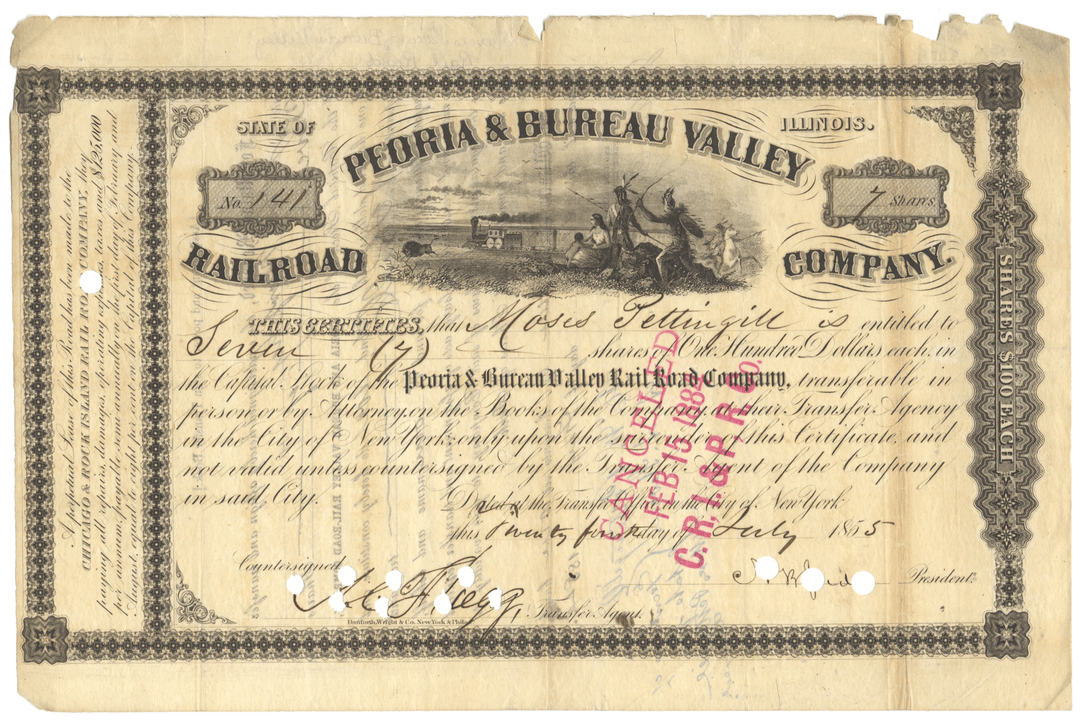 STATE OF
PEORIA & BUREAU VALLEY
ILLINOIS.
No. 141
7 Shares
RAILROAD
COMPANY.
THIS CERTIFIES, that Moses Pettingill is entitled to
Seven (7) shares of One Hundred Dollars each, in
the Capital Stock of the Peoria & Bureau Valley Rail Road Company, transferable in
person or by Attorney, on the Books of the Company, at their Transfer Agency
in the City of New York, only upon the surrender of this Certificate, and
not valid unless countersigned by the Transfer Agent of the Company
in said City.
Dated at the Transfer Office in the City of New York
this Twenty fourth day of July 1855
Countersigned
President.
Transfer Agent.
Danforth, Wright & Co. New York & Phila
A perpetual Lease of this Road has been made to the
CHICAGO & ROCK ISLAND RAIL ROAD COMPANY, they
paying all repairs, damages, operating expenses, taxes and $125,000
per annum, payable semi-annually on the first day of February and
August, equal to eight per cent on the Capital of this Company.
SHARES $100 EACH
CANCELED
FEB 15 1884
C. R. I. & P. R. R. CO.